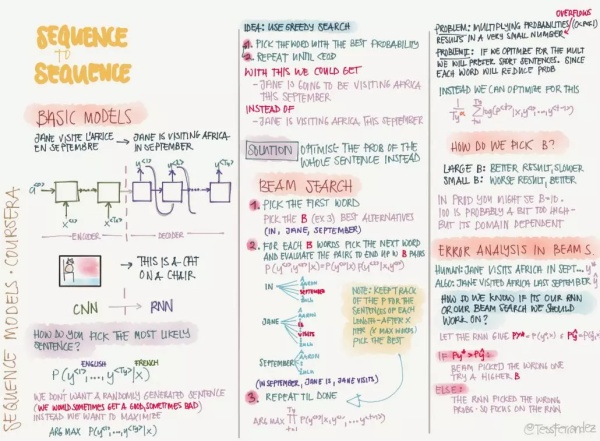 SEQUENCE MODELS · COURSERA
SEQUENCE
to
SEQUENCE
BASIC MODELS
JANE VISITE L'AFRICE
EN SEPTEMBRE
→ JANE IS VISITING AFRICA
IN SEPTEMBER
y<1> y<2> y<Ty>
a<0>
x<1> x<Tx>
ENCODER DECODER
THIS IS A CAT
ON A CHAIR
CNN → RNN
HOW DO YOU PICK THE MOST LIKELY
SENTENCE?
ENGLISH FRENCH
P(y<1>,...,y<Ty>|x)
WE DON'T WANT A RANDOMLY GENERATED SENTENCE
(WE WOULD SOMETIMES GET A GOOD, SOMETIMES BAD)
INSTEAD WE WANT TO MAXIMIZE
ARG MAX P(y<1>,...,y<Ty>|x)
IDEA: USE GREEDY SEARCH
1. PICK THE WORD WITH THE BEST PROBABILITY
2. REPEAT UNTIL <EOS>
WITH THIS WE COULD GET
- JANE IS GOING TO BE VISITING AFRICA
THIS SEPTEMBER
INSTEAD OF
- JANE IS VISITING AFRICA THIS SEPTEMBER
SOLUTION OPTIMISE THE PROB OF THE
WHOLE SENTENCE INSTEAD
BEAM SEARCH
1. PICK THE FIRST WORD
PICK THE B (EX. 3) BEST ALTERNATIVES
(IN, JANE, SEPTEMBER)
2. FOR EACH B WORDS PICK THE NEXT WORD
AND EVALUATE THE PAIRS TO END UP W B PAIRS
P(y<1>,y<2>|x)=P(y<1>|x)P(y<2>|x,y<1>)
IN
SEPTEMBER
JANE
IS
VISITS
SEPTEMBER
NOTE: KEEP TRACK
OF THE P FOR THE
SENTENCES OF EACH
LENGTH - AFTER X
ITER (X MAX WORDS)
PICK THE BEST
(IN SEPTEMBER, JANE IS, JANE VISITS)
3. REPEAT TIL DONE
ARG MAX
OVERFLOWS
PROBLEM: MULTIPLYING PROBABILITIES
RESULTS IN A VERY SMALL NUMBER
PROBLEM: IF WE OPTIMIZE FOR THE MULT
WE WILL PREFER SHORT SENTENCES. SINCE
EACH WORD WILL REDUCE PROB
INSTEAD WE CAN OPTIMIZE FOR
HOW DO WE PICK B?
LARGE B: BETTER RESULT, SLOWER
SMALL B: WORSE RESULT, BETTER
IN PROD YOU MIGHT SE B=10.
100 IS PROBABLY A BIT TOO HIGH-
BUT ITS DOMAIN DEPENDENT
ERROR ANALYSIS IN BEAM S.
HUMAN: JANE VISITS AFRICA IN SEPT...
ALGO: JANE VISITED AFRICA LAST SEPTEMBER
HOW DO WE KNOW IF ITS OUR RNN
OR OUR BEAM SEARCH WE SHOULD
WORK ON?
LET THE RNN GIVE
IF
BEAM PICKED THE WRONG ONE
TRY A HIGHER B
ELSE:
THE RNN PICKED THE WRONG
PROBS - SO FOCUS ON THE RNN
@TessFerrandez